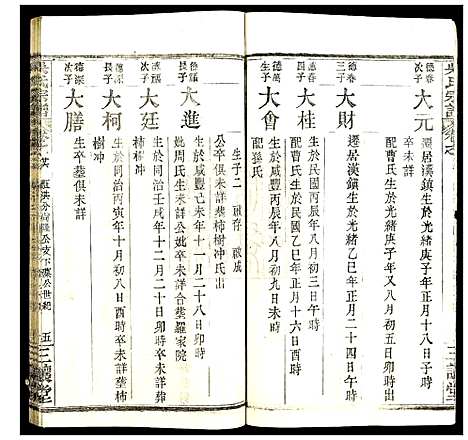 吳氏宗譜
大元
遷居漢鎮生於光緒庚子年正月十八日子時
卒未詳
德春三子
大財
遷居漢鎮生於光緒乙巳年正月二十四日午時
配曹氏生於光緒庚子年又八月初五日酉時出
德春四子
大桂
生於同治丙寅年八月初三日午時
配曹氏生於同治庚午年正月十六日酉時
德萬生子
大會
生於咸豐丙辰年八月初九日未時
配孫氏
生子二 祖存 祖成
德謡長子
大進
公卒未詳葬柿樹沖氏出
生於咸豐己未年十一月二十八日卯時
妣周氏生未詳公妣卒未詳合葬羅家院
德深長子
大廷
生於同治壬戌年十二月二十日卯時
柿樹沖
大柯
生於同治丙寅年十月初八日酉時卒未詳葬柿
樹沖
德深次子
大膳
生卒葬俱未詳
吳氏宗譜
五
三讓堂